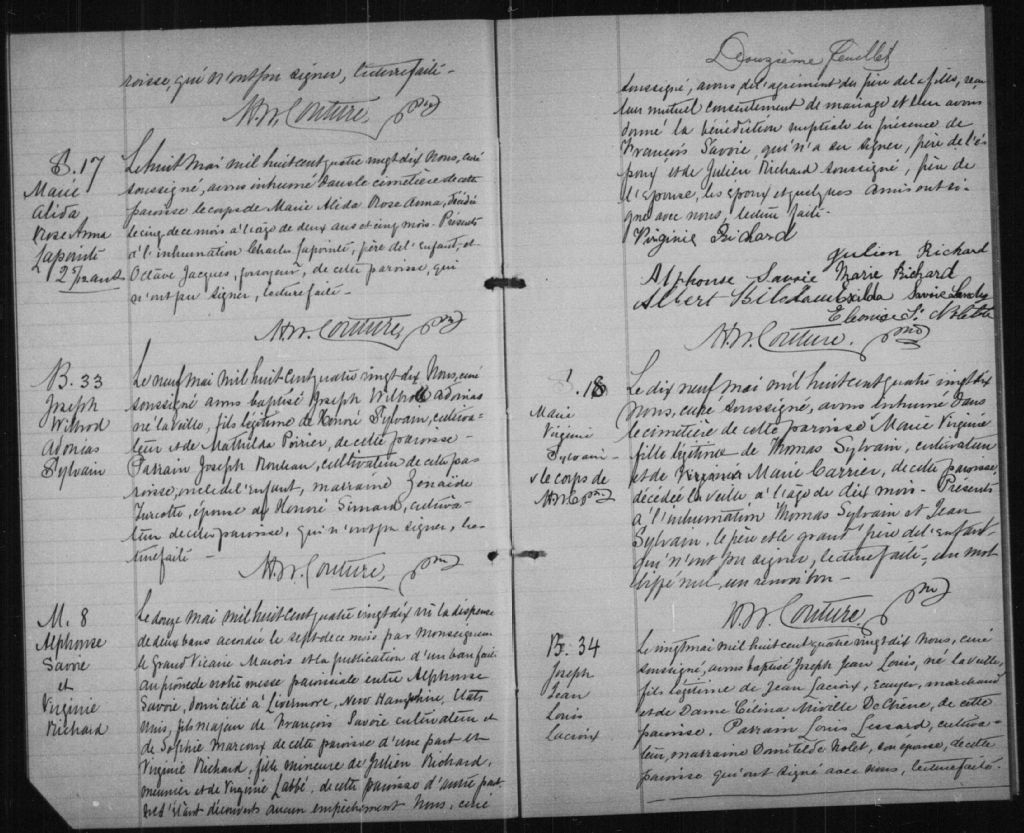 roisse, qui n'ont pu signer, lecture faite -
H.W. Couture, ptre
S. 17
Marie
Alida
Rose Anna
Lapointe
2 5/12 ans
Le huit mai mil huit cent quatre vingt dix Nous, curé
soussigné, avons inhumé dans le cimetière de cette
paroisse le corps de Marie Alida Rose Anna, décédée
le cinq de ce mois à l'âge de deux ans et cinq mois - Présents
à l'inhumation Charles Lapointe, père de l'enfant, et
Octave Jacques, fossoyeur, de cette paroisse, qui
n'ont pu signer, lecture faite -
H.W. Couture, ptre
B. 33
Joseph
Wilhod
Adonias
Sylvain
Le neuf mai mil huit cent quatre vingt dix Nous, curé
soussigné avons baptisé Joseph Wilhod Adonias
né la veille, fils légitime de Honoré Sylvain, cultiva-
teur et de Mathilda Poirier, de cette paroisse -
Parrain Joseph Rouleau, cultivateur de cette pa-
roisse, oncle de l'enfant, marraine Zénaïde
Turcotte, épouse de Honoré Simard, cultiva-
teur de cette paroisse, qui n'ont pu signer, lec-
ture faite -
H.W. Couture, ptre
M. 8
Alphonse
Savoie
et
Virginie
Richard
Le douze mai mil huit cent quatre vingt dix vu la dispense
de deux bans accordée le sept de ce mois par Monseigneur
le Grand Vicaire Marois et la publication d'un ban faite
au prône de notre messe paroissiale entre Alphonse
Savoie, domicilié à Livermore, New Hampshire, Etats
Unis, fils majeur de François Savoie cultivateur et
de Sophie Marcoux de cette paroisse d'une part et
Virginie Richard, fille mineure de Julien Richard,
meunier et de Virginie Labbé, de cette paroisse d'autre part
ne s'étant découvert aucun empêchement Nous, curé
Douzième feuillet
soussigné, avons de l'agrément du père de la fille, reçu
leur mutuel consentement de mariage et leur avons
donné la bénédiction nuptiale en présence de
François Savoie, qui n'a su signer, père de l'é-
poux et de Julien Richard soussigné, père de
l'épouse, les époux et quelques amis ont si-
gné avec nous, lecture faite -
Virginie Richard
Julien Richard
Alphonse Savoie Marie Richard
Albert Exilda Savoie Landry
H.W. Couture, ptre
S. 18
Marie
Virginie
Sylvain -
v le corps de
H.W.C. ptre
Le dix neuf mai mil huit cent quatre vingt dix
Nous, curé soussigné, avons inhumé dans
le cimetière de cette paroisse v Marie Virginie
fille légitime de Thomas Sylvain, cultivateur
et de Virginie Marie Carrier, de cette paroisse,
décédée la veille à l'âge de dix mois - Présents
à l'inhumation Thomas Sylvain et Jean
Sylvain, le père et le grand père de l'enfant
qui n'ont pu signer, lecture faite - un mot
biffé nul, un renvoi bon -
H.W. Couture, ptre
B. 34
Joseph
Jean
Louis
Lacroix
Le vingt mai mil huit cent quatre vingt dix Nous, curé
soussigné, avons baptisé Joseph Jean Louis, né la veille,
fils légitime de Jean Lacroix, Ecuyer, marchand
et de Dame Célina Miville DeChêne, de cette
paroisse. Parrain Louis Lessard, cultiva-
teur, marraine Domitilde Nolet, son épouse, de cette
paroisse qui ont signé avec nous, lecture faite.